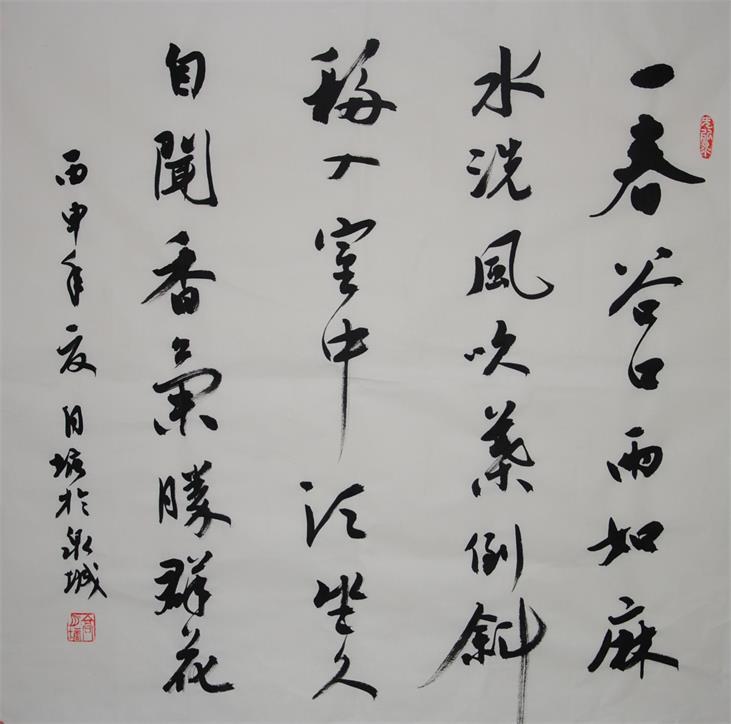 一春谷口雨如麻
水洗風吹葉倒斜
移入室中坐久
自聞香氣勝群花
丙申年夏月於泉城